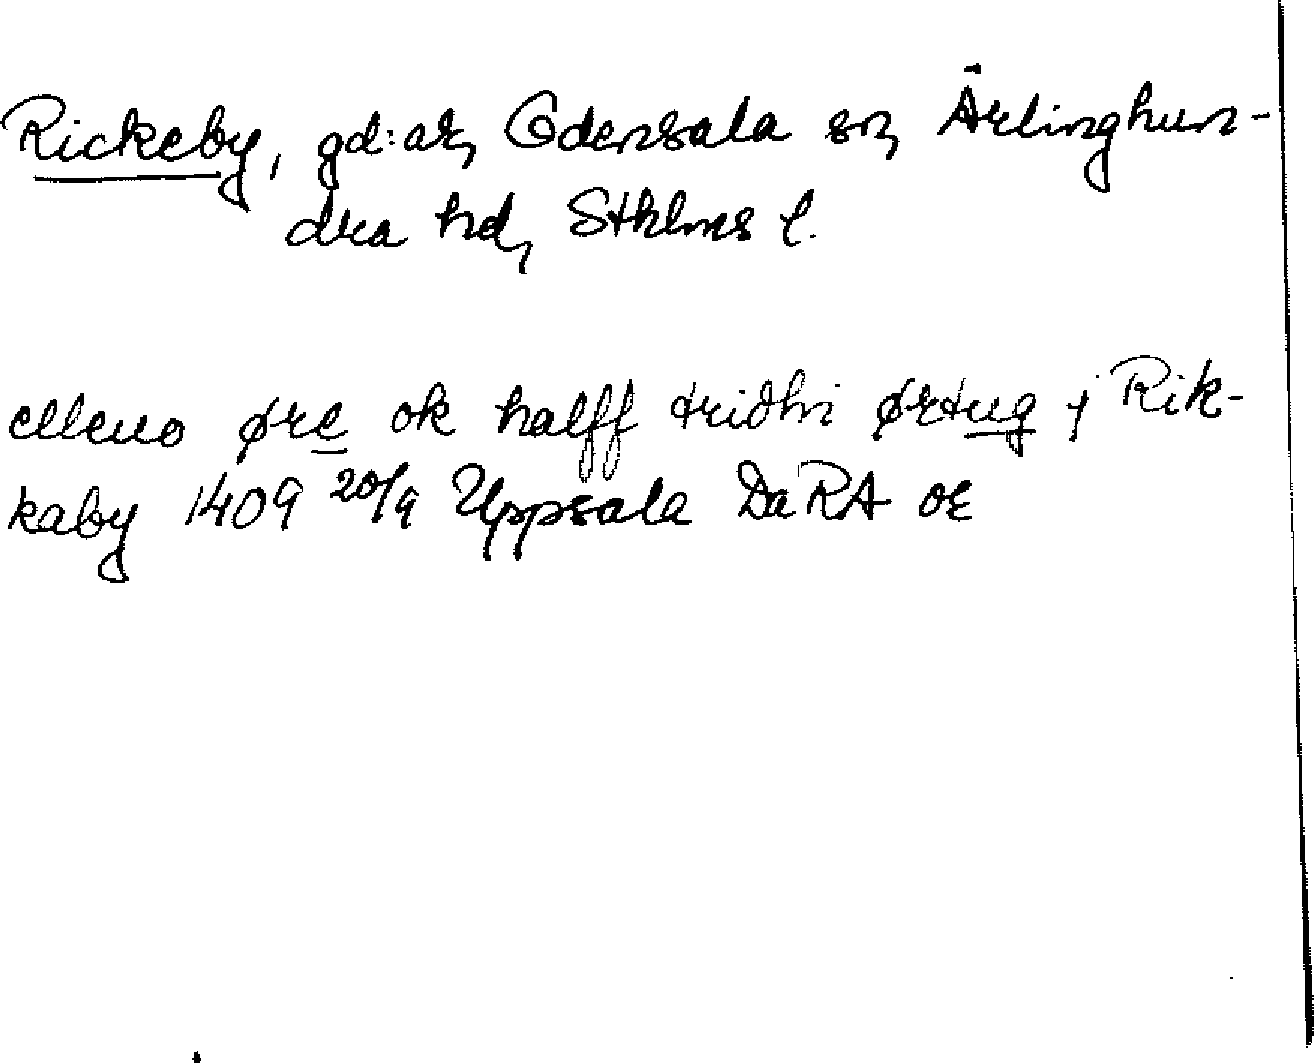 Rickeby, gd:ar, Odensala sn, Ärlinghun-
dra hd, Sthlms l.
elleuo øre ok halff tridhi ørtug j Rik-
kaby 1409 20/9 Uppsala Da RA or